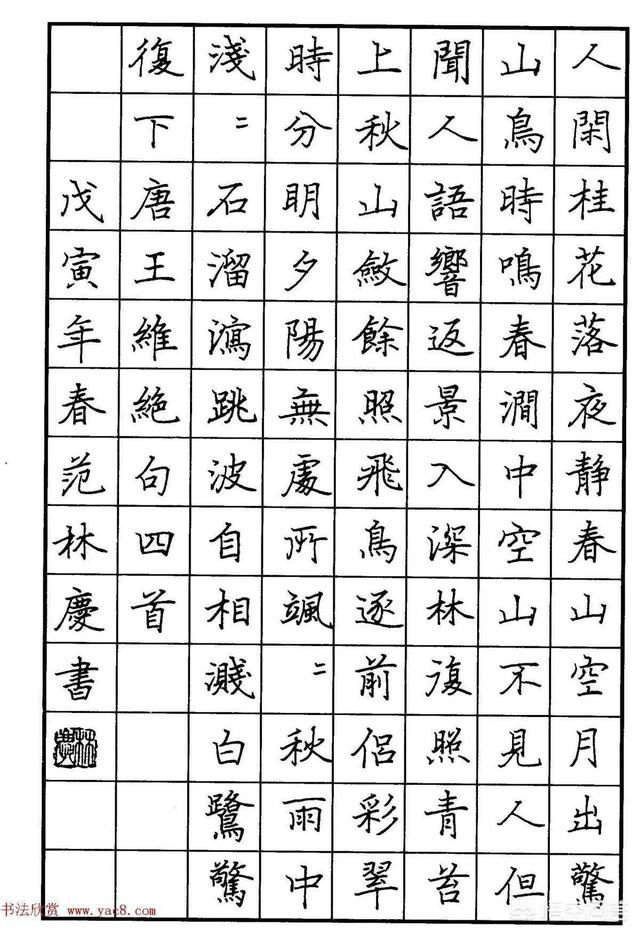 人閑桂花落夜靜春山空月出驚
山鳥時鳴春澗中空山不見人但
聞人語響返景入深林復照青苔
上秋山斂餘照飛鳥逐前侶彩翠
時分明夕陽無處所颯〻秋雨中
淺〻石溜瀉跳波自相濺白鷺驚
復下唐王維絶句四首
戊寅年春范林慶書
书法欣赏 www.yac8.com